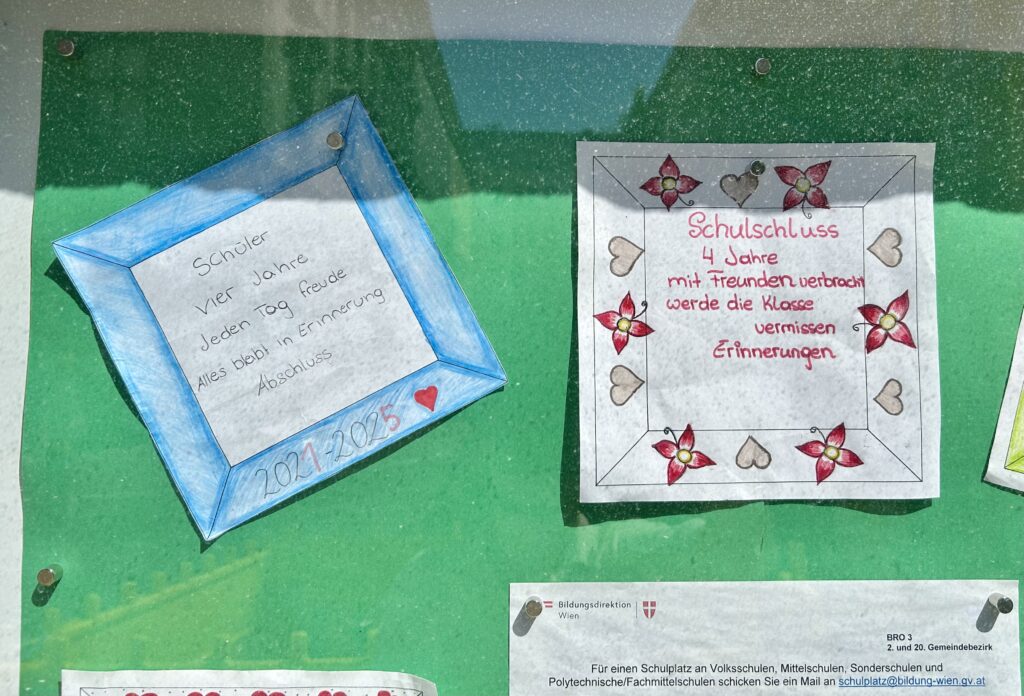 Schüler
vier Jahre
Jeden Tag freude
Alles bleibt in Erinnerung
Abschluss
2021-2025
Schulschluss
4 Jahre
mit Freunden verbracht
werde die Klasse
vermissen
Erinnerungen
Bildungsdirektion
Wien
BRO 3
2. und 20. Gemeindebezirk
Für einen Schulplatz an Volksschulen, Mittelschulen, Sonderschulen und
Polytechnische/Fachmittelschulen schicken Sie ein Mail an schulplatz@bildung-wien.gv.at